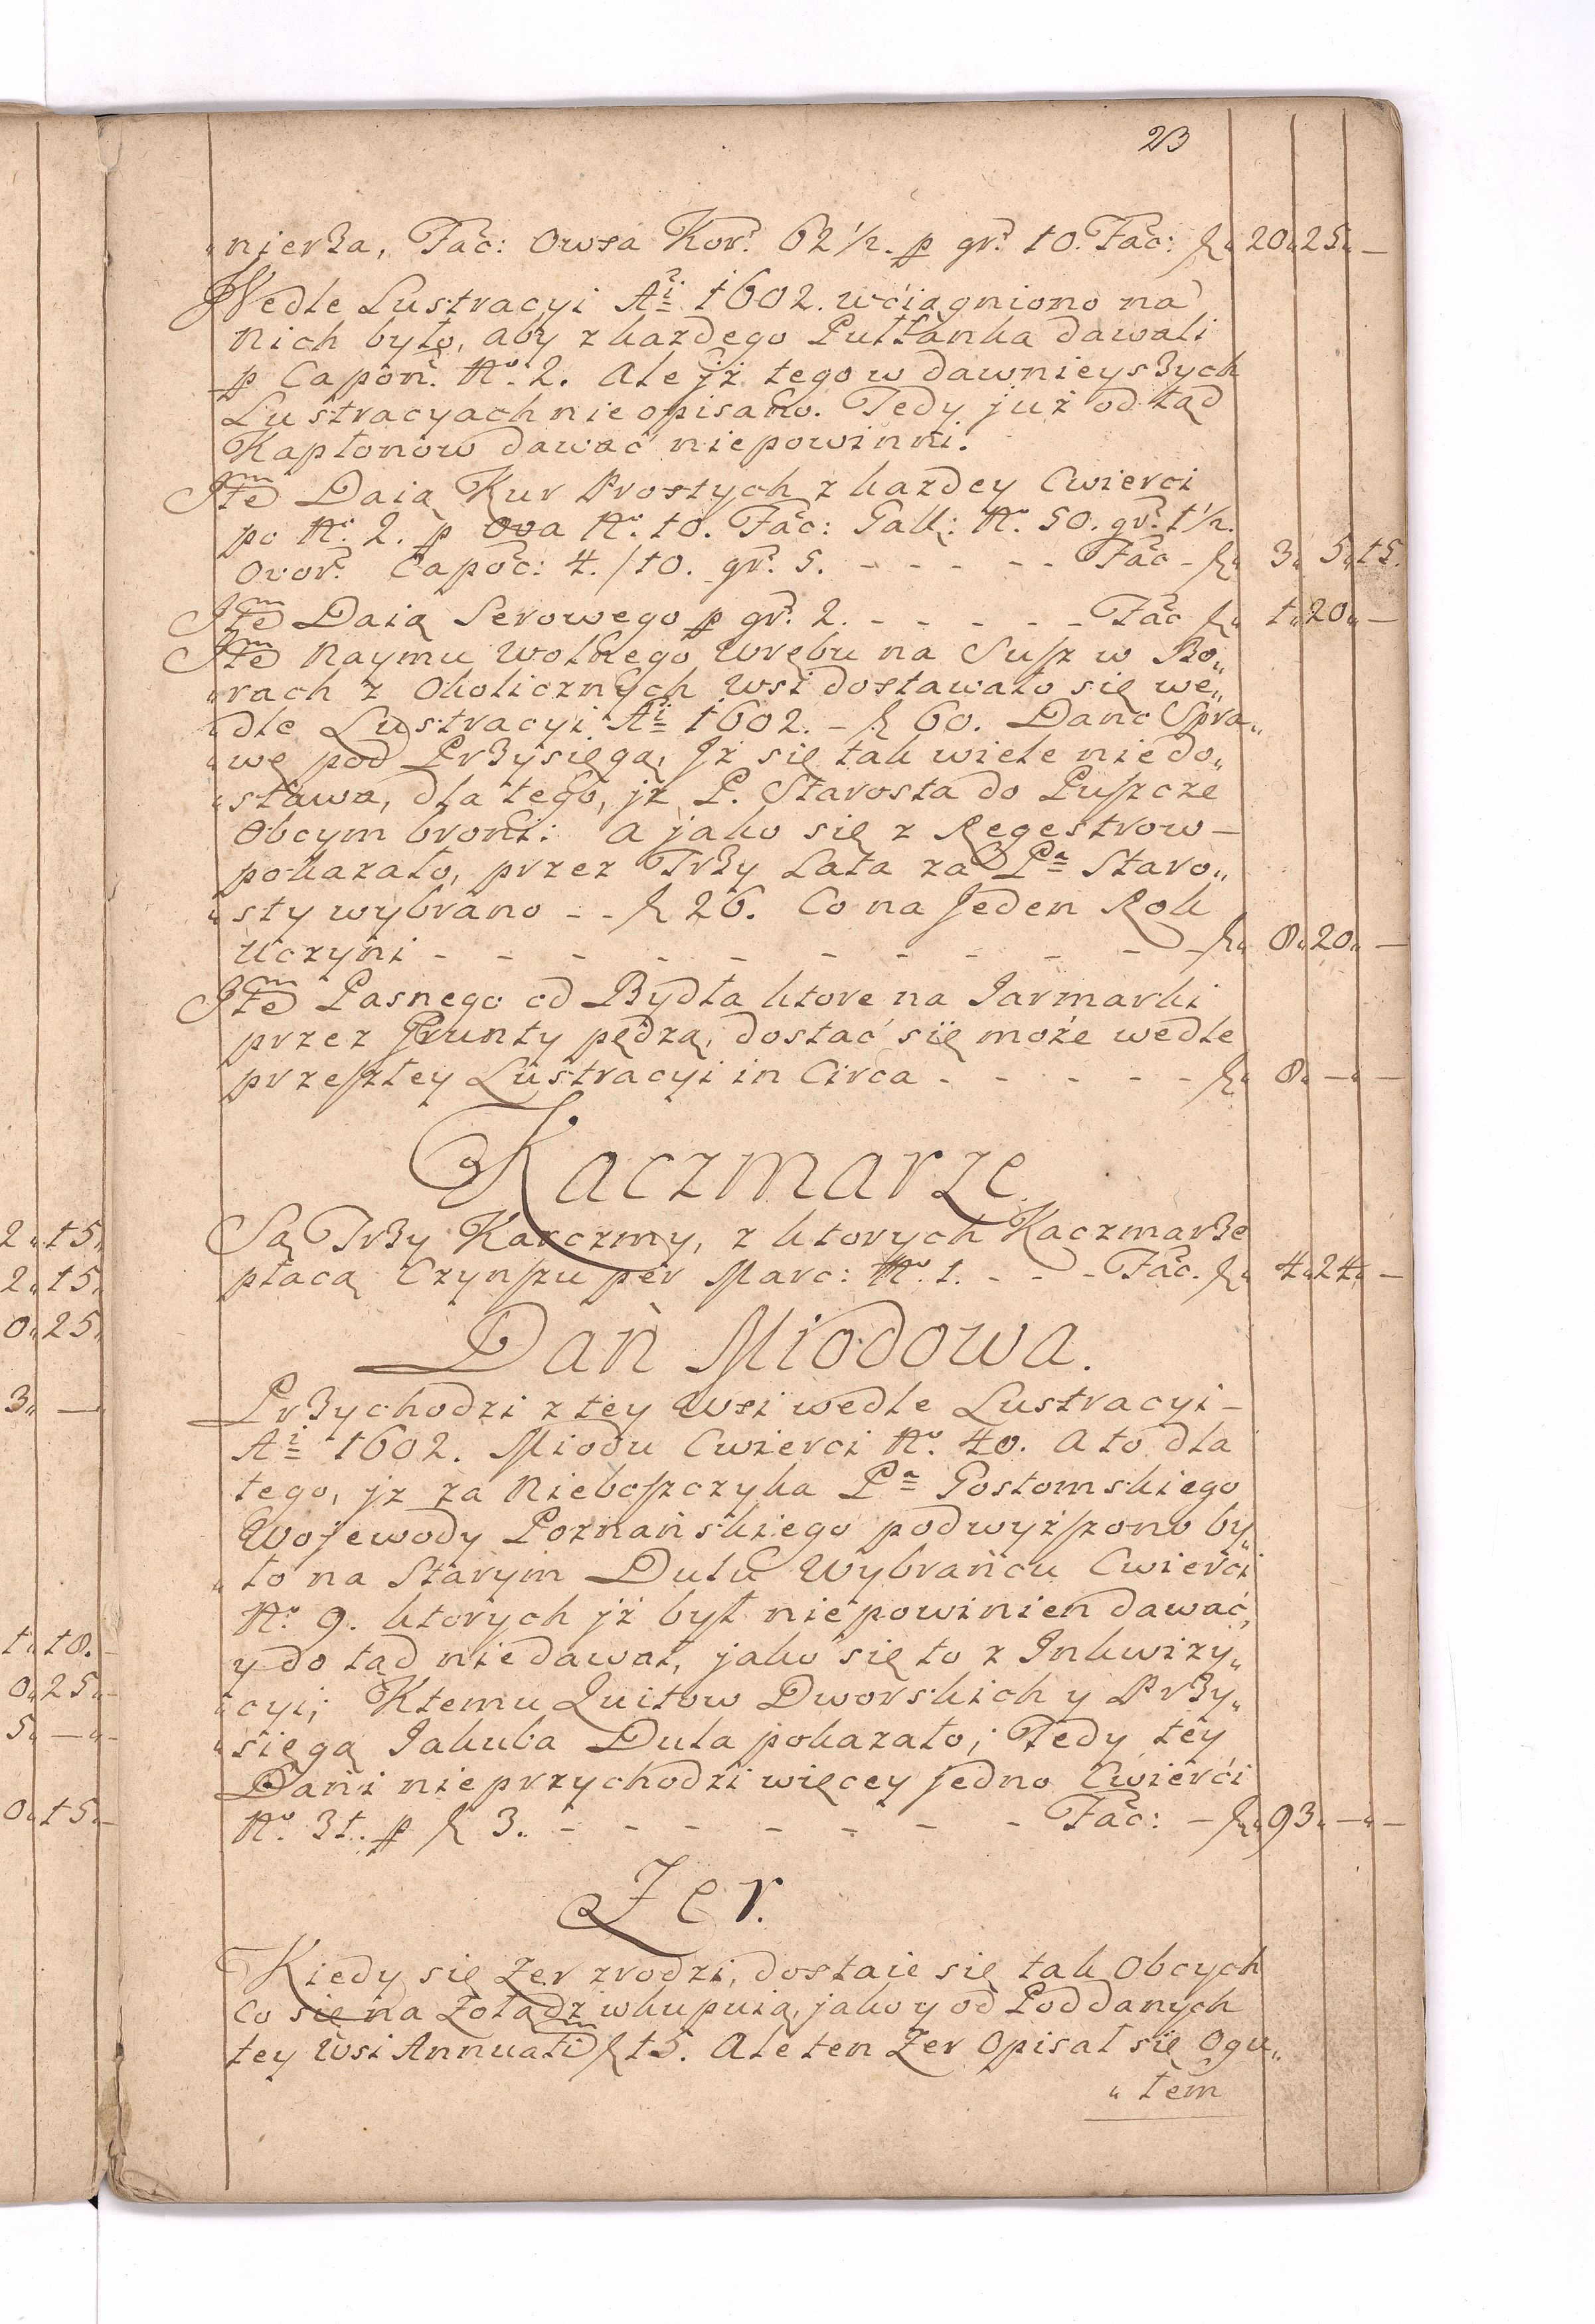 23
„nierza, Fac: Owsa Kor. 62 1/2. p gr. 10. Fac: fl„ 20„ 25„ —
Wedle Lustracyi Ai 1602. wciągniono na
nich było, aby z każdego Pułłanka dawali
p Capon. No. 2. Ale jż tego w dawnieyszych
Lustracyach nie opisano. Tedy już od tąd
Kapłonow dawać niepowinni.
Itē Daią Kur Prostych z każdey Cwierci
po No. 2. p Ova No. 10. Fac: Gall: No. 50. gr. 1 1/2.
Ovor. Capoc: 4./10. gr. 5. - - - - - Fac - fl„ 3„ 5„ 15.
Itē Daią Serowego p gr. 2. - - - - - Fac fl„ 1„ 20„ —
Itē Naymu Wolnego Wrębu na Susz w Bo„
„rach z Okolicznych Wsi dostawało się we„
„dle Lustracyi Ai 1602. - fl 60. Dano Spra„
„wę pod Przysięgą, Jż się tak wiele niedo„
„stawa, dla tego, jż P. Starosta do Puszcze
Obcym broni: a jako się z Regestrow —
pokazało, przez Trzy Lata za Pa Staro„
„sty wybrano - - fl 26. Co na Jeden Rok
Uczyni - - - - - - - - - - - fl„ 8„ 20„ —
Itē Pasnego od Bydła ktore na Jarmarki
przez Grunty pędzą, dostać się może wedle
przeszłey Lustracyi in Circa - - - - - fl„ 8„ —„ —
Kaczmarze.
Są Trzy Karczmy, z ktorych Kaczmarze
płacą Czynszu per Marc: No. 1. - - - Fac. fl„ 4„ 24„ —
Dań Miodowa.
Przychodzi z tey Wsi wedle Lustracyi —
Ai 1602. Miodu Cwierci No. 40. A to dla
tego, jż za Nieboszczyka Pa Gostomskiego
Wojewody Poznańskiego podwyższono by„
„ło na Starym Dulu Wybrańcu Cwierci
No. 9. ktorych jż był niepowinien dawać,
y do tąd niedawał, jako się to z Inkwizy„
„cyi; Ktemu Quitow Dworskich y Przy„
„sięgą Jakuba Dula pokazało; Tedy tey
Dani nie przychodzi więcey jedno Cwierci
No. 31. p fl 3. - - - - - - - Fac: - fl„ 93„ —„ —
Zer.
Kiedy się Zer zrodzi, dostaie się tak Obcych
co się na Zołądz wkupuią, jako y od Poddanych
tey Wsi Annuatī fl 15. Ale ten Zer Opisał się Ogu„
„łem
2„ 15„
2„ 15„
0„ 25„
3„ —„
1„ 18. -
0„ 25„ -
5„ —„ -
0„ 15„ -